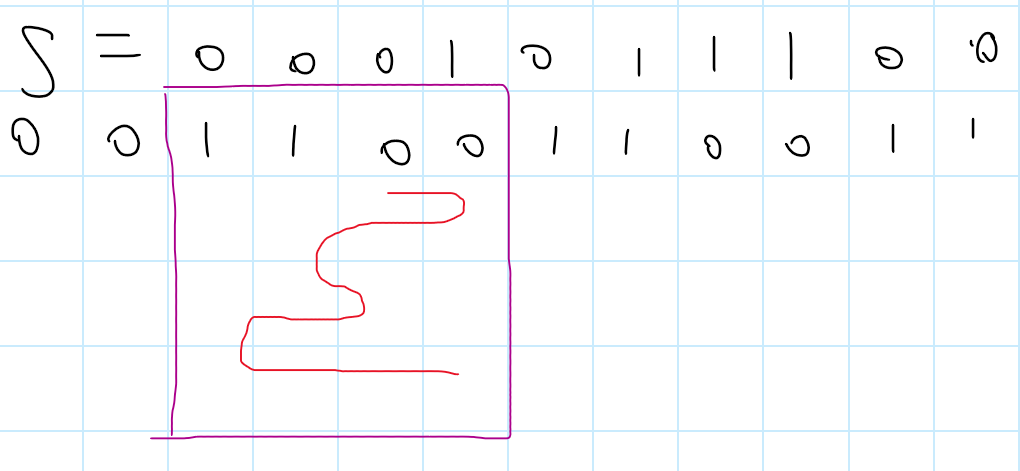 S = 0 0 0 1 0 1 1 1 0 0
0 0 1 1 0 0 1 1 0 0 1 1